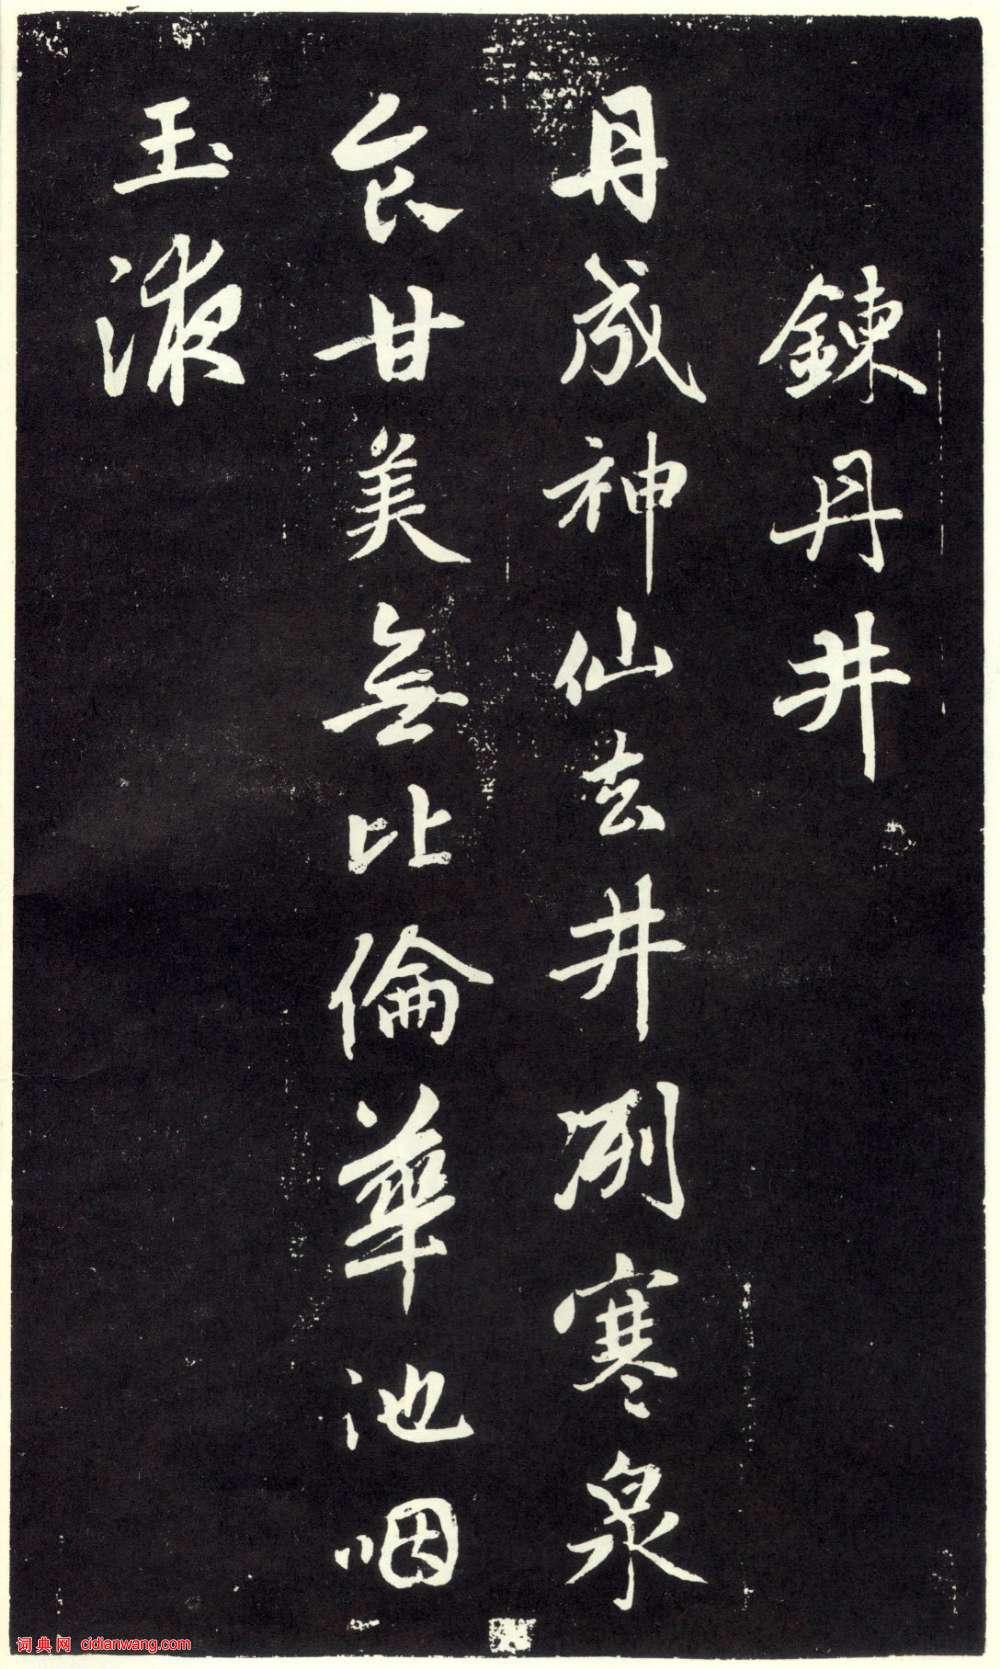 鍊丹井
丹成神仙去井冽寒泉
食甘美無比倫華池咽
玉液
词典网 cidianwang.com